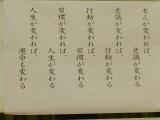 考えが変われば、
意識が変わる
意識が変われば、
行動が変わる
行動が変われば、
習慣が変わる
習慣が変われば、
人生が変わる
人生が変われば、
運命も変わる